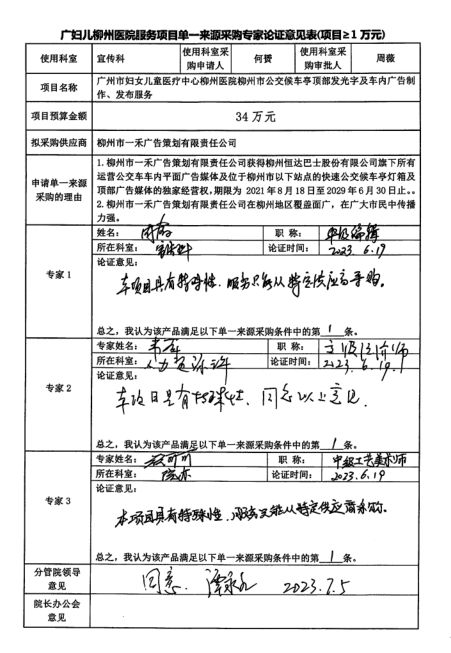 广妇儿柳州医院服务项目单一来源采购专家论证意见表(项目≥1万元)
使用科室 宣传科 使用科室采购申请人 何赟 使用科室采购审批人 周薇
项目名称 广州市妇女儿童医疗中心柳州医院柳州市公交候车亭顶部发光字及车内广告制作、发布服务
项目预算金额 34万元
拟采购供应商 柳州市一禾广告策划有限责任公司
申请单一来源采购的理由
1.柳州市一禾广告策划有限责任公司获得柳州恒达巴士股份有限公司旗下所有
运营公交车车内平面广告媒体及位于柳州市以下站点的快速公交候车亭灯箱及
顶部广告媒体的独家经营权,期限为 2021年8月18日至2029年6月30日止。
2.柳州市一禾广告策划有限责任公司在柳州地区覆盖面广,在广大市民中传播
力强。
专家1
姓名: 职 称: 中级编辑
所在科室: 宣传科 论证时间: 2023.6.19
论证意见:
本项目具有特殊性,服务只能从特定供应商采购。
总之,我认为该产品满足以下单一来源采购条件中的第 1 条。
专家2
专家姓名: 职 称:
所在科室: 论证时间: 2023.6.19
论证意见:
本项目具有特殊性,同意以上意见.
总之,我认为该产品满足以下单一来源采购条件中的第 1 条。
专家3
专家姓名: 职 称: 中级工艺美术师
所在科室: 论证时间: 2023.6.19
论证意见:
本项目具有特殊性,服务只能从特定供应商采购。
总之,我认为该产品满足以下单一来源采购条件中的第 1 条。
分管院领导意见 同意 2023.7.5
院长办公会意见